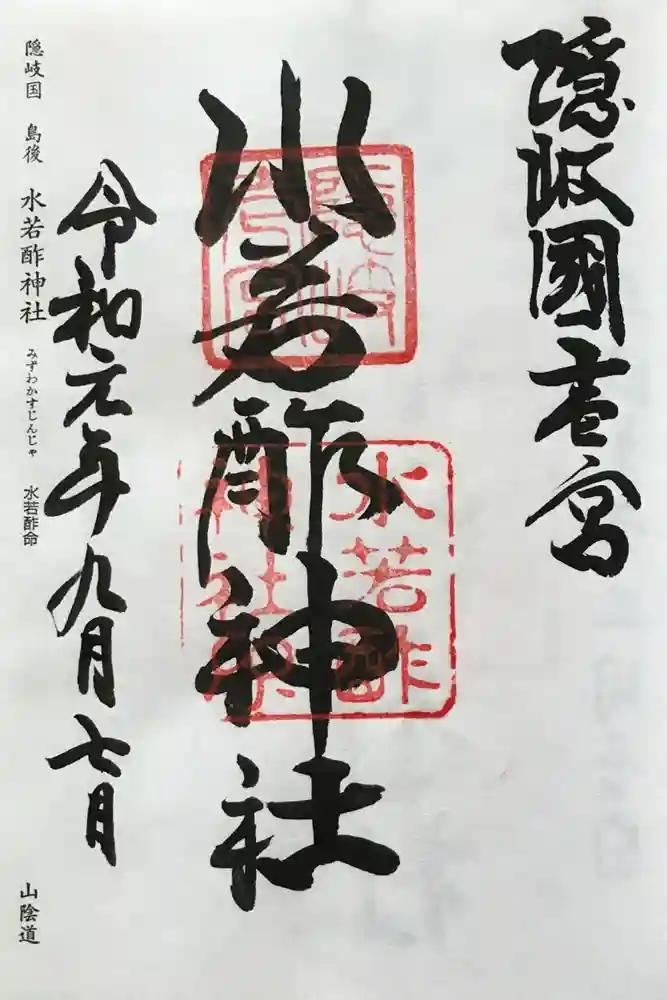 隠岐國壱宮
水若酢神社
隠岐
水若酢
神社
令和元年九月七月
隠岐国 島後 水若酢神社 みずわかすじんじゃ 水若酢命
山陰道